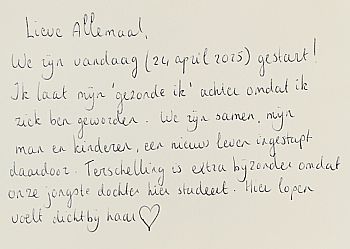 Lieve Allemaal,
We zijn vandaag (24 april 2025) gestart!
Ik laat mijn 'gezonde ik' achter omdat ik
ziek ben geworden. We zijn samen, mijn
man en kinderen, een nieuw leven ingestapt
daardoor. Terschelling is extra bijzonder omdat
onze jongste dochter hier studeert. Hier lopen
voelt dichtbij haar ♡